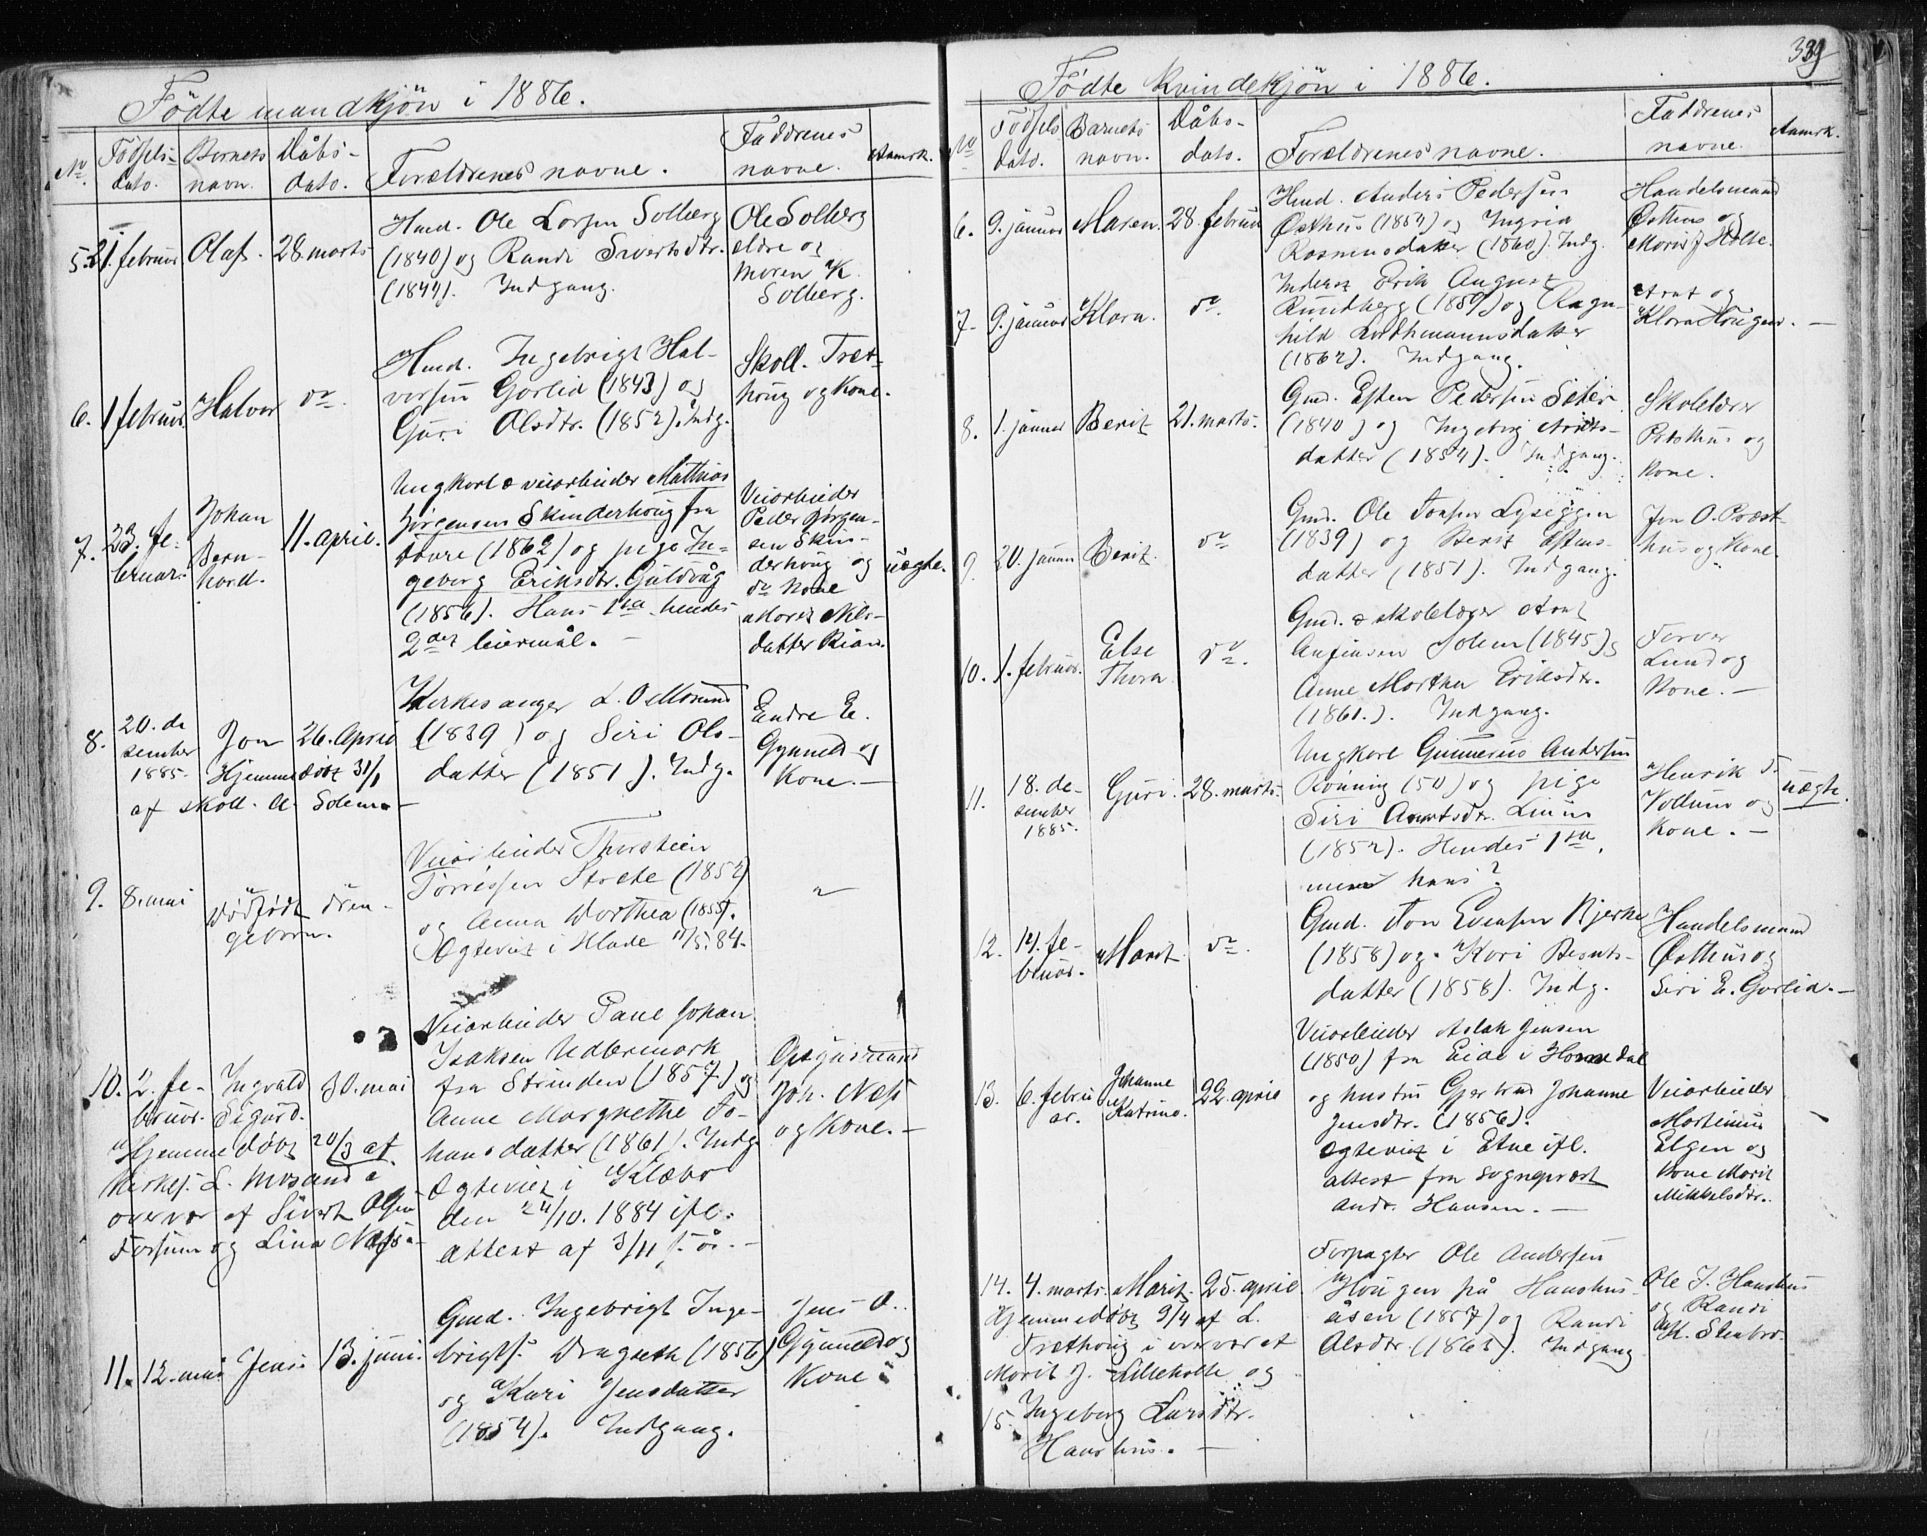 Födte mandkjön i 1886.
No. Födsels- dato. Barnets navn. Dåbs- dato. Forældrenes navne. Faddrenes navne. Anmrk.
5. 21. februar Olaf. 28. marts
Hmd. Ole Larsen Solberg
(1840) og Randi Sivertsdtr.
(1844). Indgang.
Ole Solberg
eldre og
Solberg.
6. 1 februar. Halvor do.
Hmd. Ingebrigt Hal-
vorsen Gorlid (1843) og
Guri Olsdtr. (1852). Indg.
Skoll. Træt-
houg og kone.
7. 23. fe-
bruar.
Johan
Bern-
hard.
11. april.
Ungkarl & veiarbeider Mathias
Jörgensen Skinderhoug fra
(1862) og pige In-
geborg Eriksdtr. Guldvåg
(1856). Hans 1ste hendes
2det leiermål. —
Veiarbeider
Peder Jörgen-
sen Skin-
derhoug og
do kone
Marit Nils-
datter Rian.
uægte.
8. 20. de
sember
1885.
Jon 26. April
Hjemmedöbt 31/1
af skoll. A. Solem. —
Kirkesanger L. O. Mosand
(1839) og Siri Ols-
datter (1851). Indg.
Endre E.
Gynneld og
Kone. —
9. 8. mai Dödfödt dren-
gebarn.
Veiarbeider Thorstein
Torrissen (1852)
og Anna Dorthea (1855).
Ægteviet i Hlade 11/5. 84.
10. 2. fe-
bruar.
Ingvald
Sigurd.
30. mai
Hjemmedöbt 20/3 af
kirkes. L. Mosand i
overvær af Sivert Olsen
Forsum og Lina Næss. —
Veiarbeider Paul Johan
Isaksen Udlermark
fra Strinden (1857) og
Anne Margrethe Jo-
hansdatter (1861). Indg.
Ægteviet i Klæbo
den 24/10. 1884 ifl.
attest af 3/11 s. å. —
Opsynsmand
Joh. Næss
og Kone. —
11. 12. mai Jens. 13. juni.
Gmd. Ingebrigt Inge-
brigts. Dragseth (1856)
og Kari Jensdatter
(1854). Indgang.
Jens O.
Gynneld og
Kone
339
Födte kvindekjön i 1886.
No Födsels dato. Barnets navn. Dåbs- dato. Forældrenes navne. Faddrenes navne. Anmrk.
6. 9. januar Maren. 28. februar
Hmd. Anders Pedersen
Östhus (1854) og Ingrid
Rasmusdatter (1860). Indg.
Handelsmand
Östhus og
Marit J. Holte.
7. 9. januar Klara. do.
Erik August
Rundberg (1859) og Ragn-
hild
(1862). Indgang.
Arnt og
Klara Hougen. —
8. 1. januar Berit 21. marts.
Gmd. Esten Pedersen Seter
(1840) og Ingeborg Arnts-
datter (1854). Indgang.
Skolelærer
og
Kone.
9. 20. januar Berit. do
Gmd. Ole Jonsen Lyseggen
(1839) og Berit Estens-
datter (1851). Indgang.
Jon O. Præst-
hus og Kone.
10. 1. februar. Else
Thora do.
Gmd. & skolelærer Arnt
Anfinsen Solem (1845) og
Anne Marthea Eriksdtr.
(1861.). Indgang.
Farver
Lund og
Kone. —
11. 18. de-
sember
1885.
Guri. 28. marts.
Ungkarl Gunnerius Andersen
Rönning (50) og pige
Siri Arntsdtr. Lium
(1852). Hendes 1ste,
mens hans?
Henrik J.
Voldum og
Kone. —
uægte
12. 14. fe-
bruar. Marit do.
Gmd. Jon Evensen Bjerke
(1858) og Kari Bernts-
datter (1858). Indg.
Handelsmand
Östhus og
Siri E. Gorlid. —
13. 6. febru
ar.
Johanne
Katrine. 22. april
Veiarbeider Aslak Jensen
(1850) fra Eide i
og hustru Gjertrud Johanne
Jensdtr. (1856).
Ægteviet i Etne ifl.
attest fra sogneprest
Andr. Hansen. —
Veiarbeider
Martinus
Elgen og
Kone Marit
Mikkelsdtr.
14. 4. marts. Marit. 25. april
Hjemmedöbt 9/4 af L.
Trethoug i overvær af
Marit J. Lilleholte og
15. Ingeborg Larsdtr.
Hanshus. —
Forpagter Ole Andersen
Hougen på Hanshus-
åsen (1857) og Randi
Olsdtr. (1863). Indgang
Ole J. Hanshus
og Randi
Stenbro.